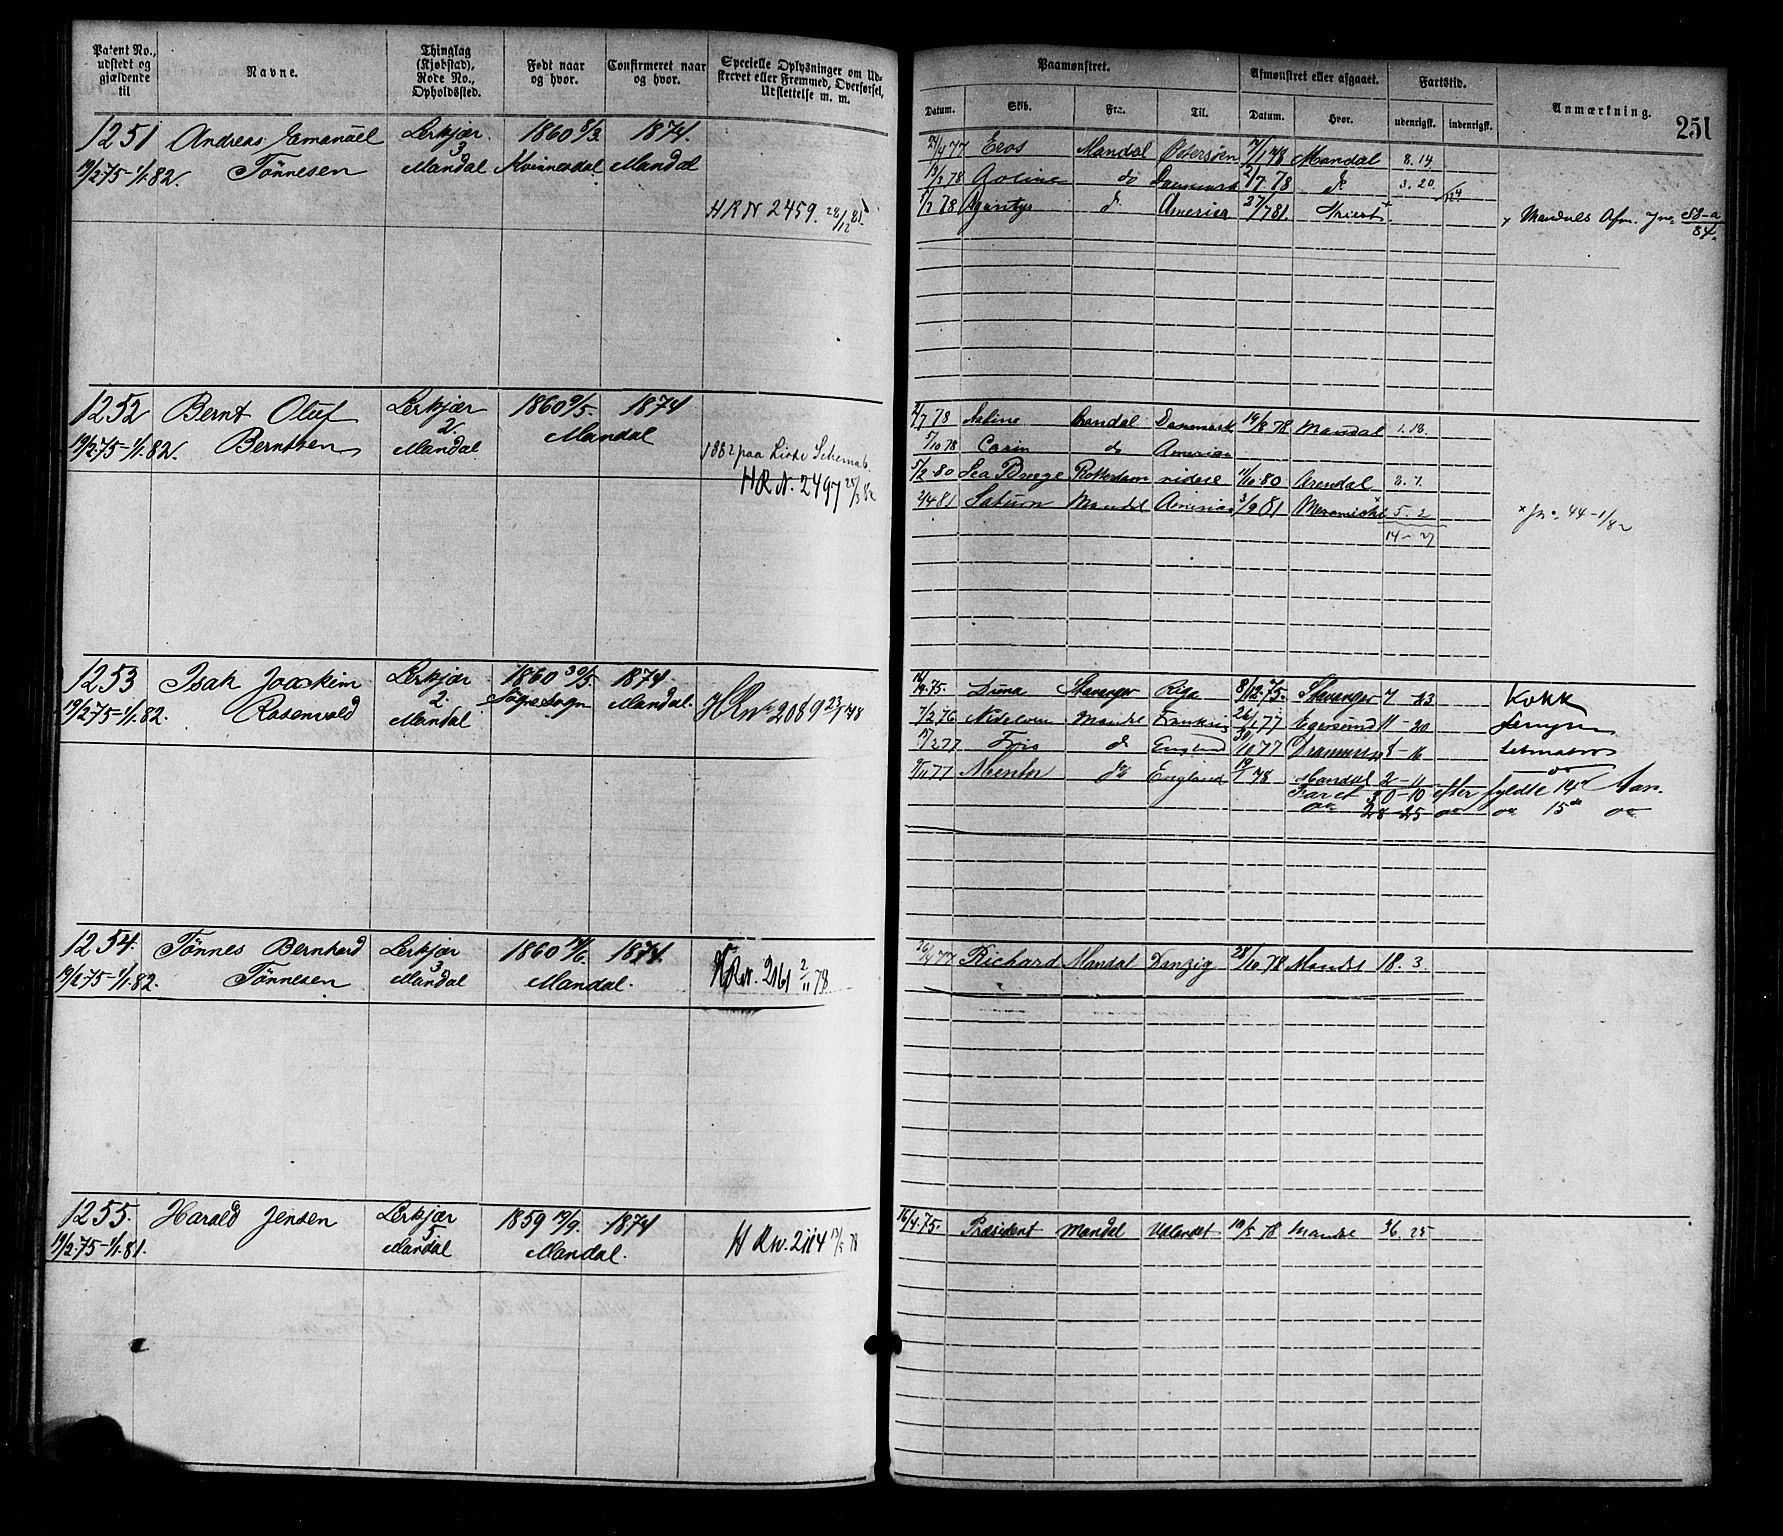 Patent No., udstedt og gjældende til
Navne.
Thinglag (Kjøbstad), Rode No., Opholdssted.
Født naar og hvor.
Confirmeret naar og hvor.
Specielle Oplysninger om Udskrevet eller Fremmed, Overførsel, Udslettelse m. m.
Paamønstret.
Afmønstret eller afgaaet.
Fartstid.
Anmærkning.
251
Datum. Skib. Fra: Til. Datum. Hvor. udenrigsk. indenrigsk.
1251 Andreas Emanuel Lerkjær 1860 8/3 1874
19/2 75-1/1 82. Tønnesen 3 Mandal Kvinnesdal Mandal
HRN 2459. 28/12 81
Eros Mandal Østersøen 7/1 78 Mandal 8. 14
13/3 78 do Danmark 2/7 78 3. 20
78 America 27/7 81
x Mandals Afm. Jno 88-a/84.
1252 Bernt Oluf Lerkjær 1860 9/5. 1874
19/2 75-1/1 82. Berntsen 2. Mandal Mandal
1882 paa
HRN. 2497 25/3 82
2/7 78 Mandal Danmark 19/8 78 Mandal 1. 18.
5/10 78 do America
5/2 80 Rotterdam 11/10 80 Arendal 8. 7.
2/4 81 Saturn Mandal America 3/9 81 5. 2
14-27
x Jno. 44-1/82
1253 Isak Joackim Lerkjær 1860 30/5. 1874
19/2 75-1/1. 82. Rosenvold 2. Mandal Søgne Sogn Mandal.
HRN 2089 23/1 78
75. Stavanger Riga 8/12 75. Stavanger 7-23 Kokk
7/2 76 Mandal 26/1 77 Egersund 11-20
77 do England 77
77 Mentor do England 19/1 78 Mandal 2-11
Faret 30-10 efter fyldte 14de Aar.
do 28-25 do do 15de do
1254. Tønnes Bernhard Lerkjær 1860 1874.
19/2 75-1/1. 82. Tønnesen 3 Mandal Mandal.
HRN. 2161 2/11 78
77 Richard Mandal Danzig 28/10 78 Mandal 18. 3.
1255. Harald Jensen Lerkjær 1859 19/9. 1874
19/2 75-1/1. 81. 5 Mandal Mandal.
HRN. 2114 78
16/4 75. Præsident Mandal Udlandet 10/5 78 Mandal 36. 25